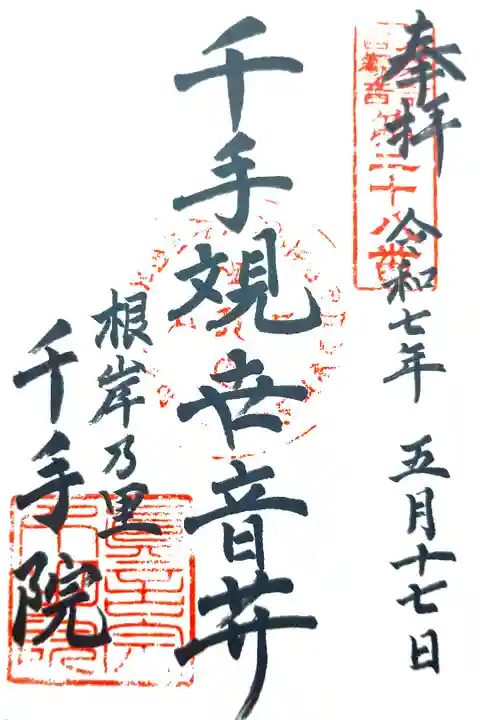 奉拝
令和七年 五月十七日
千手観世音菩薩
根岸乃里
千手院